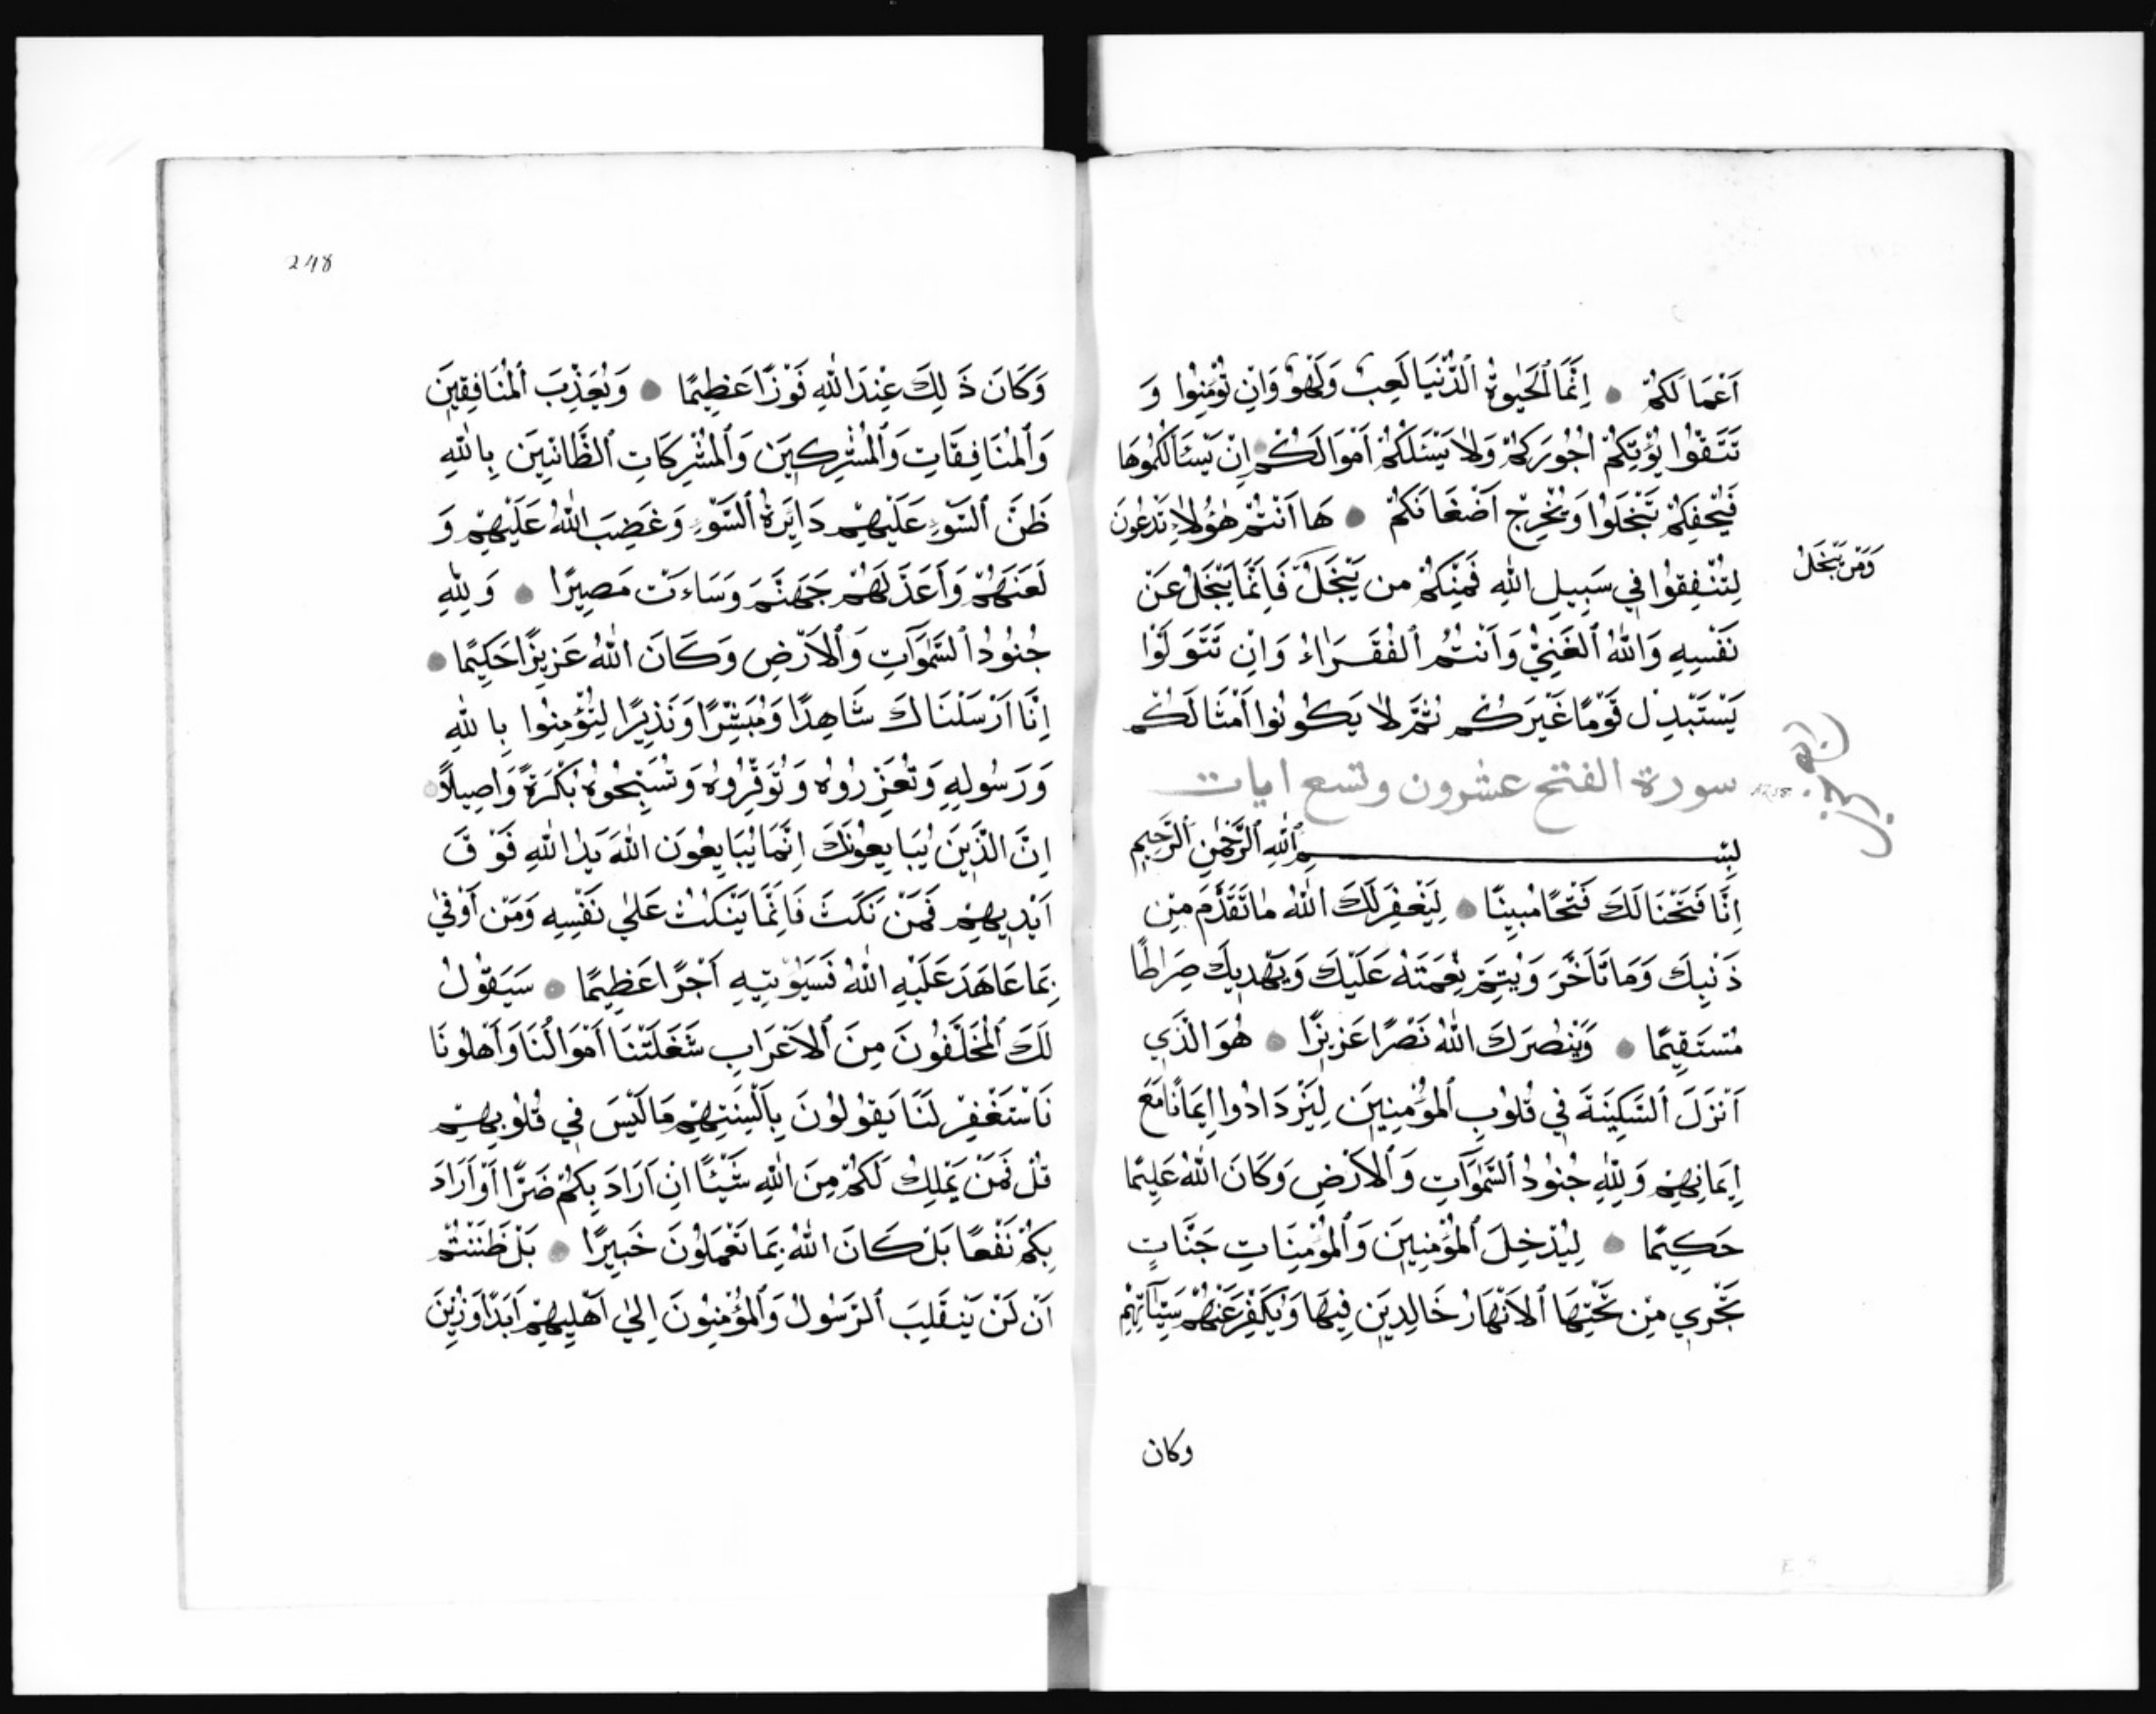 اَعْمَالَكُمْ اِنَّمَا الْحَيٰوةُ الدُّنْيَا لَعِبٌ وَلَهْوٌ وَاِنْ تُؤْمِنُوا وَ
تَتَّقُوْا يُؤْتِكُمْ اُجُورَكُمْ وَلَا يَسْئَلْكُمْ اَمْوَالَكُمْ اِنْ يَسْئَالْكُمُوهَا
فَيُحْفِكُمْ تَبْخَلُوْا وَيُخْرِجْ اَضْغَانَكُمْ هَا اَنْتُمْ هٰؤُلَاءِ تُدْعَوْنَ
لِتُنْفِقُوْا فِي سَبِيلِ اللّٰهِ فَمِنْكُمْ من يَبْخَلُ فَاِنَّمَا يَبْخَلُ عَنْ
وَمَنْ يَبْخَلْ
نَفْسِهِ وَاللّٰهُ الْغَنِيُّ وَاَنْتُمُ الْفُقَرَاءُ وَاِنْ تَتَوَلَّوْا
يَسْتَبْدِلْ قَوْمًا غَيْرَكُمْ ثُمَّ لَا يَكُونُوا اَمْثَالَكُمْ
سورة الفتح عشرون وتسع ايات
بِسْمِ اللّٰهِ الرَّحْمٰنِ الرَّحِيمِ
اِنَّا فَتَحْنَا لَكَ فَتْحًا مُبِينًا لِيَغْفِرَ لَكَ اللّٰهُ مَا تَقَدَّمَ مِنْ
ذَنْبِكَ وَمَا تَاَخَّرَ وَيُتِمَّ نِعْمَتَهُ عَلَيْكَ وَيَهْدِيَكَ صِرَاطًا
مُسْتَقِيمًا وَيَنْصُرَكَ اللّٰهُ نَصْرًا عَزِيزًا هُوَ الَّذِي
اَنْزَلَ السَّكِينَةَ فِي قُلُوبِ الْمُؤْمِنِينَ لِيَزْدَادُوا اِيمَانًا مَعَ
اِيمَانِهِمْ وَلِلّٰهِ جُنُودُ السَّمٰوَاتِ وَالْاَرْضِ وَكَانَ اللّٰهُ عَلِيمًا
حَكِيمًا لِيُدْخِلَ الْمُؤْمِنِينَ وَالْمُؤْمِنَاتِ جَنَّاتٍ
تَجْرِي مِنْ تَحْتِهَا الْاَنْهَارُ خَالِدِينَ فِيهَا وَيُكَفِّرَ عَنْهُمْ سَيِّاٰتِهِمْ
وكان
248
وَكَانَ ذَلِكَ عِنْدَ اللّٰهِ فَوْزًا عَظِيمًا وَيُعَذِّبَ الْمُنَافِقِينَ
وَالْمُنَافِقَاتِ وَالْمُشْرِكِينَ وَالْمُشْرِكَاتِ الظَّانِّينَ بِاللّٰهِ
ظَنَّ السَّوْءِ عَلَيْهِمْ دَائِرَةُ السَّوْءِ وَغَضِبَ اللّٰهُ عَلَيْهِمْ وَ
لَعَنَهُمْ وَاَعَدَّ لَهُمْ جَهَنَّمَ وَسَاءَتْ مَصِيرًا وَلِلّٰهِ
جُنُودُ السَّمٰوَاتِ وَالْاَرْضِ وَكَانَ اللّٰهُ عَزِيزًا حَكِيمًا
اِنَّا اَرْسَلْنَاكَ شَاهِدًا وَمُبَشِّرًا وَنَذِيرًا لِتُؤْمِنُوا بِاللّٰهِ
وَرَسُولِهِ وَتُعَزِّرُوهُ وَتُوَقِّرُوهُ وَتُسَبِّحُوهُ بُكْرَةً وَاَصِيلًا
اِنَّ الَّذِينَ يُبَايِعُونَكَ اِنَّمَا يُبَايِعُونَ اللّٰهَ يَدُ اللّٰهِ فَوْقَ
اَيْدِيهِمْ فَمَنْ نَكَثَ فَاِنَّمَا يَنْكُثُ عَلٰى نَفْسِهِ وَمَنْ اَوْفٰى
بِمَا عَاهَدَ عَلَيْهِ اللّٰهُ فَسَيُؤْتِيهِ اَجْرًا عَظِيمًا سَيَقُولُ
لَكَ الْمُخَلَّفُونَ مِنَ الْاَعْرَابِ شَغَلَتْنَا اَمْوَالُنَا وَاَهْلُونَا
فَاسْتَغْفِرْ لَنَا يَقُولُونَ بِاَلْسِنَتِهِمْ مَا لَيْسَ فِي قُلُوبِهِمْ
قُلْ فَمَنْ يَمْلِكُ لَكُمْ مِنَ اللّٰهِ شَيْئًا اِنْ اَرَادَ بِكُمْ ضَرًّا اَوْ اَرَادَ
بِكُمْ نَفْعًا بَلْ كَانَ اللّٰهُ بِمَا تَعْمَلُونَ خَبِيرًا بَلْ ظَنَنْتُمْ
اَنْ لَنْ يَنْقَلِبَ الرَّسُولُ وَالْمُؤْمِنُونَ اِلٰى اَهْلِيهِمْ اَبَدًا وَزُيِّنَ